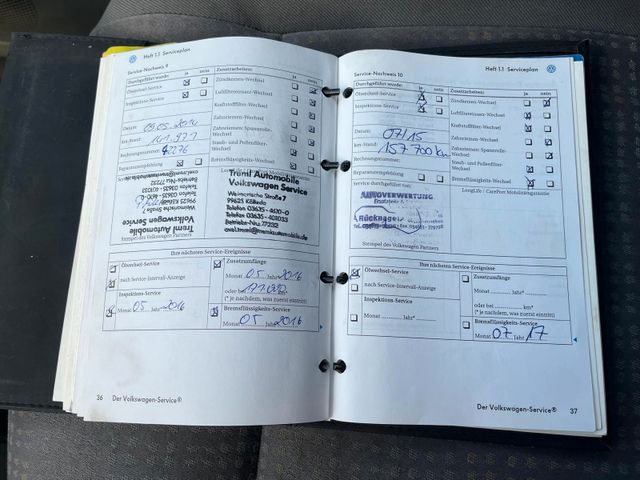 Heft 1.1 Serviceplan
Service-Nachweis 9
Durchgeführt wurde: ja nein
Ölwechsel-Service
Inspektions-Service
Datum: 05.05.2014
km-Stand: 141.971
Rechnungsnummer:
Reparaturempfehlung
Zusatzarbeiten: ja nein
Zündkerzen-Wechsel
Luftfiltereinsatz-Wechsel
Kraftstofffilter-Wechsel
Zahnriemen-Wechsel
Zahnriemen-Spannrolle-
Wechsel
Staub- und Pollenfilter-
Wechsel
Bremsflüssigkeits-Wechsel
Traml Automobile
Volkswagen Service
Weimarische Straße 7
99625 Kölleda
Telefon 03635-4610-0
Telefax 03635-401033
Betriebs-Nr. 77232
Stempel des Volkswagen Partners
Ihre nächsten Service-Ereignisse
Ölwechsel-Service
nach Service-Intervall-Anzeige
Inspektions-Service
Monat 05 Jahr 2016
Zusatzumfänge
Monat 05 Jahr 2016
oder bei km*
(* je nachdem, was zuerst eintritt)
Bremsflüssigkeits-Service
Monat 05 Jahr 2016
36 Der Volkswagen-Service®
Heft 1.1 Serviceplan
Service-Nachweis 10
Durchgeführt wurde: ja nein
Ölwechsel-Service
Inspektions-Service
Datum: 07/15
km-Stand: 157 700 km
Rechnungsnummer:
Reparaturempfehlung
Service durchgeführt von:
Zusatzarbeiten: ja nein
Zündkerzen-Wechsel
Luftfiltereinsatz-Wechsel
Kraftstofffilter-Wechsel
Zahnriemen-Wechsel
Zahnriemen-Spannrolle-
Wechsel
Staub- und Pollenfilter-
Wechsel
Bremsflüssigkeits-Wechsel
LongLife / CarePort Mobilitätsgarantie
AUTOVERWERTUNG
Rücknagel
Stempel des Volkswagen Partners
Ihre nächsten Service-Ereignisse
Ölwechsel-Service
nach Service-Intervall-Anzeige
Inspektions-Service
Monat ............ Jahr ............
Zusatzumfänge
Monat ............ Jahr ............
oder bei ............ km*
(* je nachdem, was zuerst eintritt)
Bremsflüssigkeits-Service
Monat 07 Jahr 17
Der Volkswagen-Service® 37